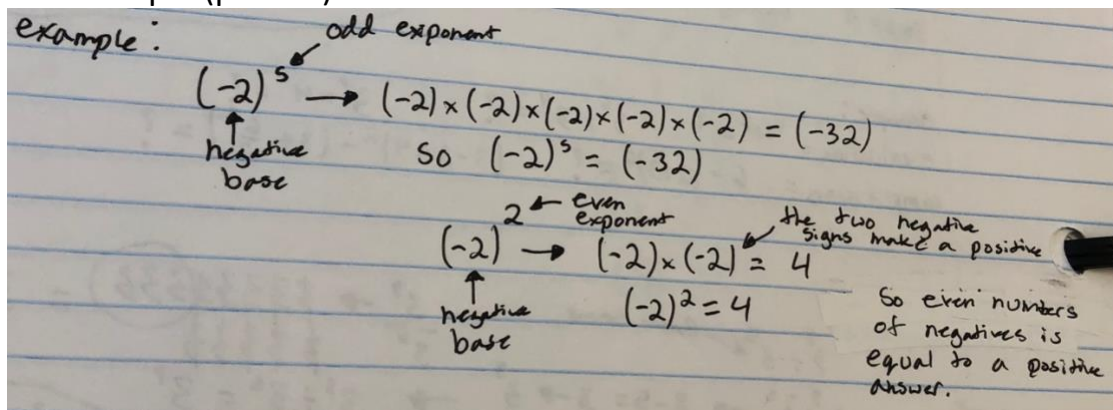 example:
odd exponent
(-2)⁵ → (-2)×(-2)×(-2)×(-2)×(-2) = (-32)
negative
base
So (-2)⁵ = (-32)
even
exponent
(-2)² → (-2)×(-2) = 4
the two negative
signs make a positive
negative
base
(-2)² = 4
So even numbers
of negatives is
equal to a positive
answer.